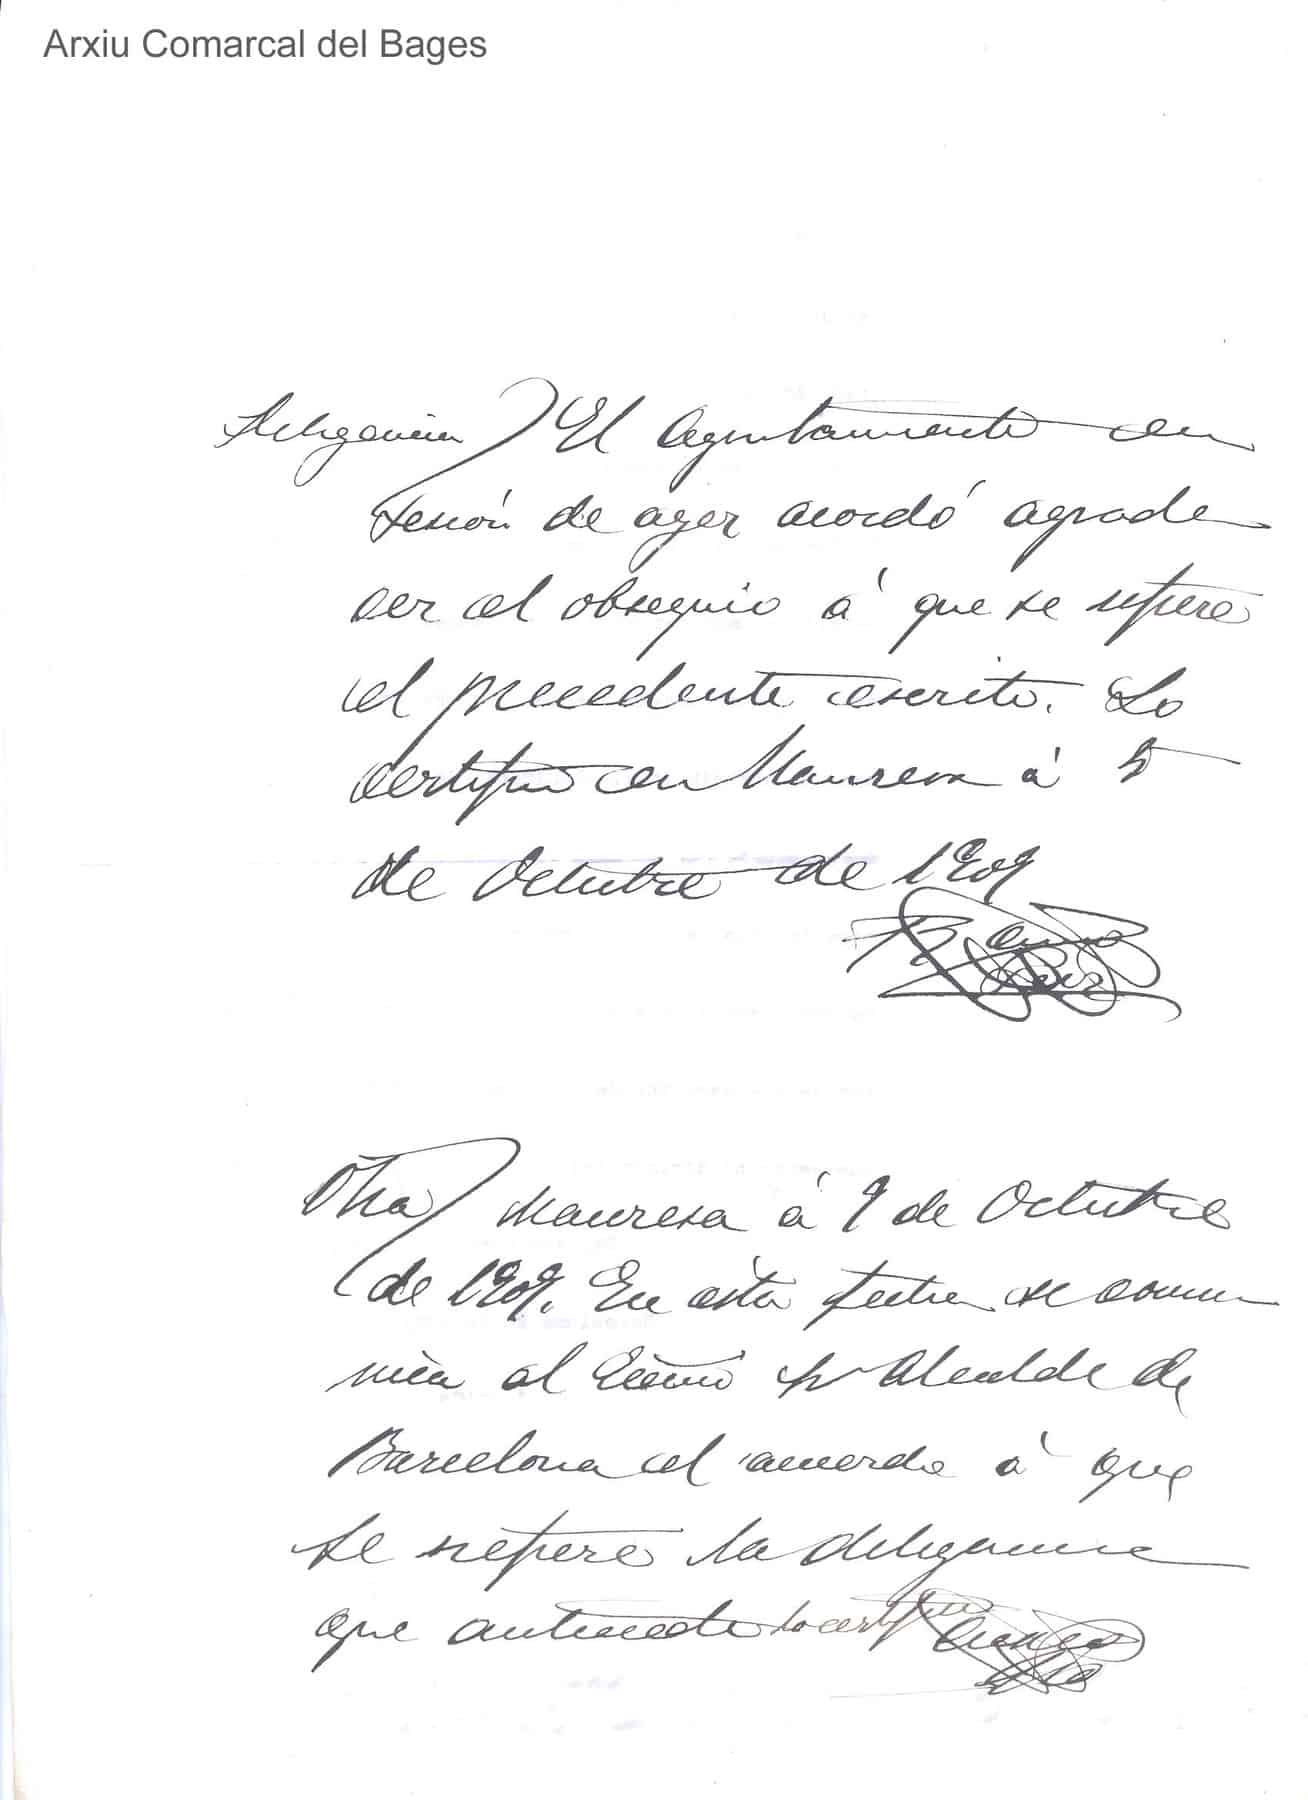 Arxiu Comarcal del Bages
Diligencia) El Ayuntamiento en
sesión de ayer acordó agrade
cer el obsequio á que se refiere
el precedente escrito. Lo
certifico en Manresa á 5
de Octubre de 1909
Otra) Manresa á 9 de Octubre
de 1909. En esta fecha se comu
nica al Excmo Sr Alcalde de
Barcelona el acuerdo á que
se refiere la diligencia
que antecede Lo certifico